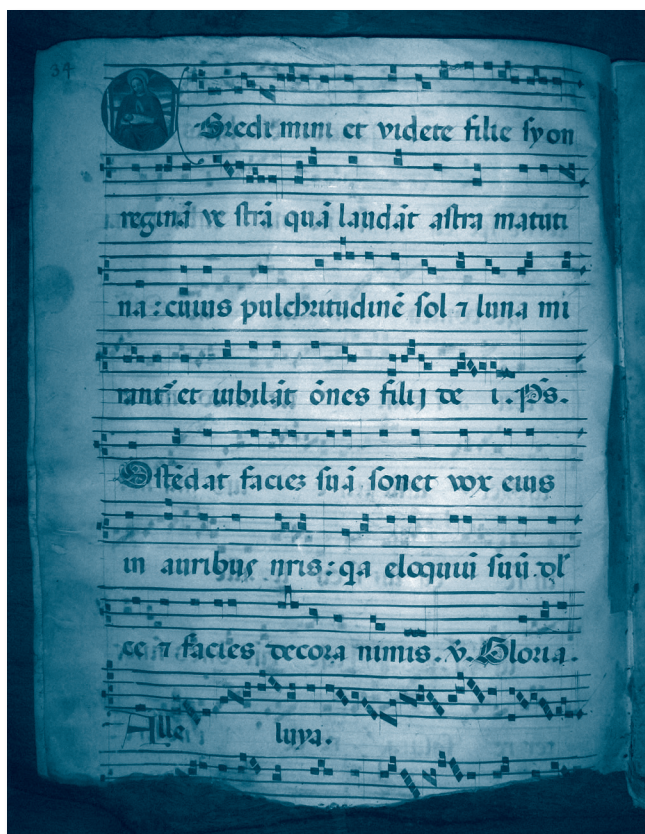 34
Egredimini et videte filie syon
reginā vestrā quā laudāt astra matuti
na : cuius pulchritudinē sol ⁊ luna mi
rant᷑ et iubilāt ōnes filij de i . Ps .
Ostēdat faciē suā sonet vox eius
in auribus nr̄is : qa eloquiū suū dl̄
ce ⁊ facies decora nimis . v̄ . Gloria .
Alle luya .